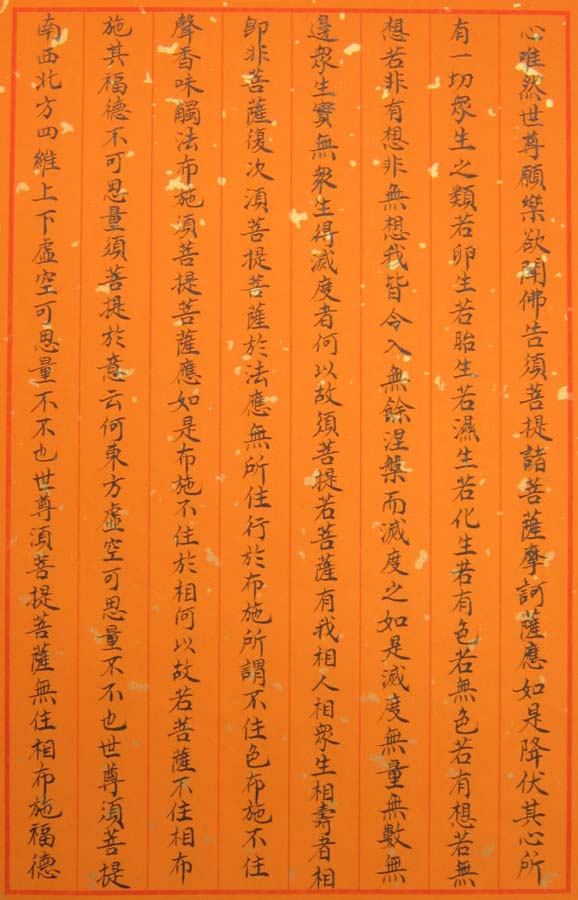 心唯然世尊願樂欲聞佛告須菩提諸菩薩摩訶薩應如是降伏其心所
有一切眾生之類若卵生若胎生若濕生若化生若有色若無色若有想若無
想若非有想非無想我皆令入無餘涅槃而滅度之如是滅度無量無數無
邊眾生實無眾生得滅度者何以故須菩提若菩薩有我相人相眾生相壽者相
即非菩薩復次須菩提菩薩於法應無所住行於布施所謂不住色布施不住
聲香味觸法布施須菩提菩薩應如是布施不住於相何以故若菩薩不住相布
施其福德不可思量須菩提於意云何東方虛空可思量不不也世尊須菩提
南西北方四維上下虛空可思量不不也世尊須菩提菩薩無住相布施福德